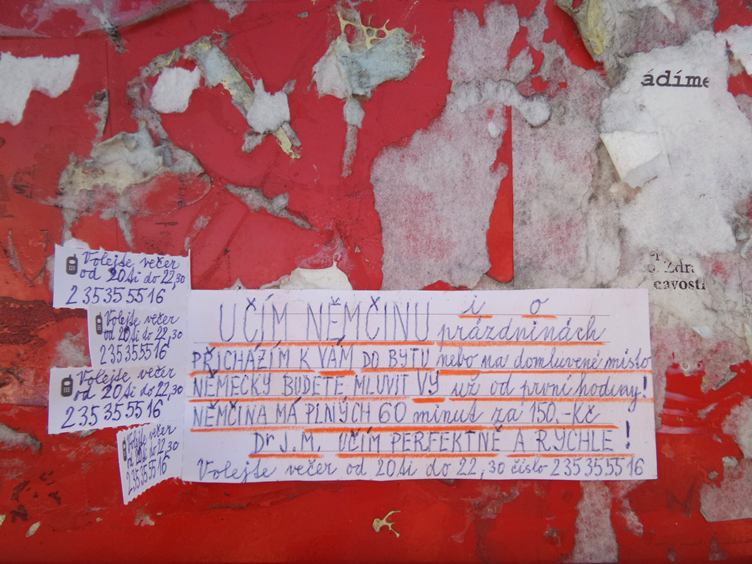 ádíme
Zdra
cavosti
Volejte večer
od 20ti do 22,30
235355516
Volejte večer
od 20ti do 22,30
235355516
Volejte večer
od 20ti do 22,30
235355516
Volejte večer
od 20ti do 22,30
235355516
UČÍM NĚMČINU i o prázdninách
PŘICHÁZÍM K VÁM DO BYTU nebo na domluvené místo
NĚMECKY BUDETE MLUVIT VY už od první hodiny!
NĚMČINA MÁ PLNÝCH 60 minut za 150.-Kč
Dr J.M. UČÍM PERFEKTNĚ A RYCHLE!
Volejte večer od 20ti do 22,30 číslo 235355516